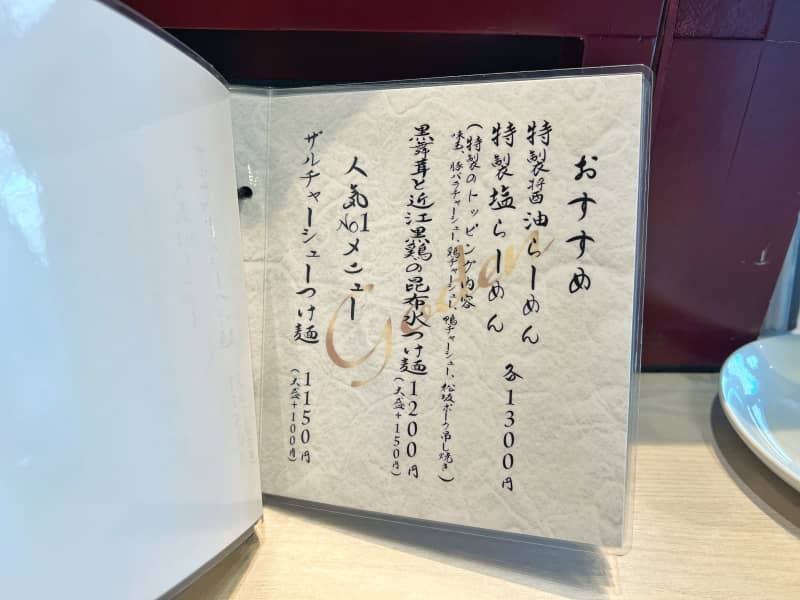 おすすめ
特製醤油らーめん
特製塩らーめん
各1300円
(特製のトッピング内容
味玉、豚バラチャーシュー、鶏チャーシュー、鴨チャーシュー、松阪ポーク吊し焼き)
黒舞茸と近江黒鶏の昆布水つけ麺 1200円
(大盛+150円)
人気No1メニュー
ザルチャーシューつけ麺 1150円
(大盛+100円)